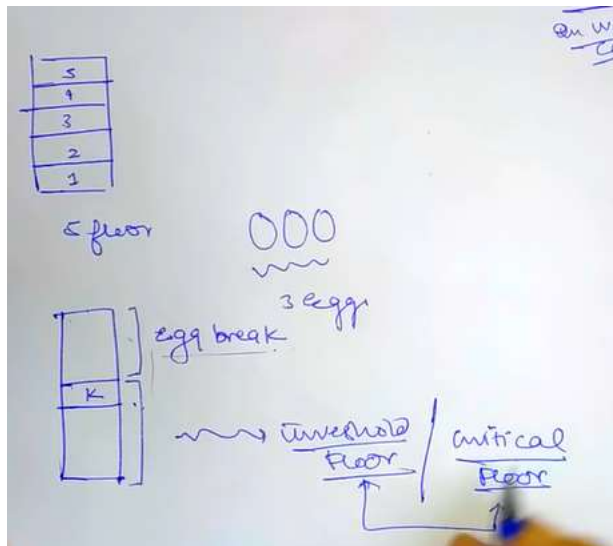 5
4
3
2
1
5 floor
3 eggs
egg break
K
threshold
Floor
critical
Floor